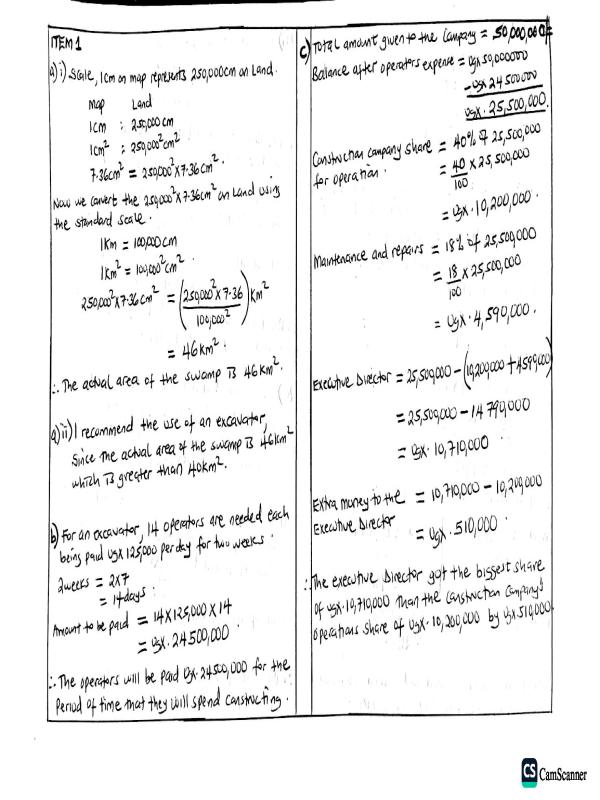 ITEM 1
a) i) Scale, 1cm on map represents 250,000cm on Land.
Map Land
1cm : 250,000cm
1cm² : 250,000²cm²
7.36cm² = 250,000² x 7.36cm².
Now we convert the 250,000² x 7.36cm² on Land using
the standard scale.
1Km = 100,000cm
1Km² = 100,000²cm²
250,000² x 7.36cm² = (250,000² x 7.36 / 100,000²) Km²
= 46Km².
∴ The actual area of the swamp is 46Km².
a) ii) I recommend the use of an excavator,
Since the actual area of the swamp is 46km²
which is greater than 40km².
b) For an excavator, 14 operators are needed each
being paid Ugx 125,000 per day for two weeks.
2weeks = 2x7
= 14days.
Amount to be paid = 14 x 125,000 x 14
= Ugx. 24500,000
∴ The operators will be paid Ugx. 24500,000 for the
Period of time that they will spend constructing.
c) Total amount given to the Company = 50,000,000/=
Balance after operators expense = Ugx 50,000000
- Ugx 24500000
Ugx. 25,500,000.
Construction company share = 40% of 25,500,000
for operation.
= 40/100 x 25,500,000
= Ugx. 10,200,000.
Maintenance and repairs = 18% of 25,500,000
= 18/100 x 25,500,000
= Ugx. 4,590,000.
Executive Director = 25,500,000 - (10,200,000 + 4590,000)
= 25,500,000 - 14790,000
= Ugx. 10,710,000.
Extra money to the = 10,710,000 - 10,200,000
Executive Director = Ugx. 510,000.
∴ The executive Director got the biggest share
of Ugx. 10,710,000 than the Construction Company's
operations share of Ugx. 10,200,000 by Ugx. 510,000.
CS CamScanner